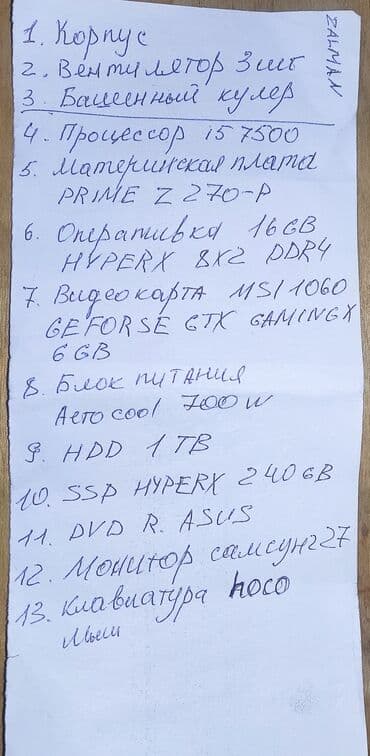 ZALMAN
1. Корпус
2. Вентилятор 3шт
3. Башенный кулер
4. Процессор i5 7500
5. Материнская плата
PRIME Z 270-P
6. Оперативка 16GB
HYPERX 8X2 DDR4
7. Видеокарта MSI 1060
GEFORSE GTX GAMINGX
6GB
8. Блок питания
Aerocool 700W
9. HDD 1TB
10. SSD HYPERX 240GB
11. DVD R. ASUS
12. Монитор самсунг 27
13. Клавиатура hoco
мыш